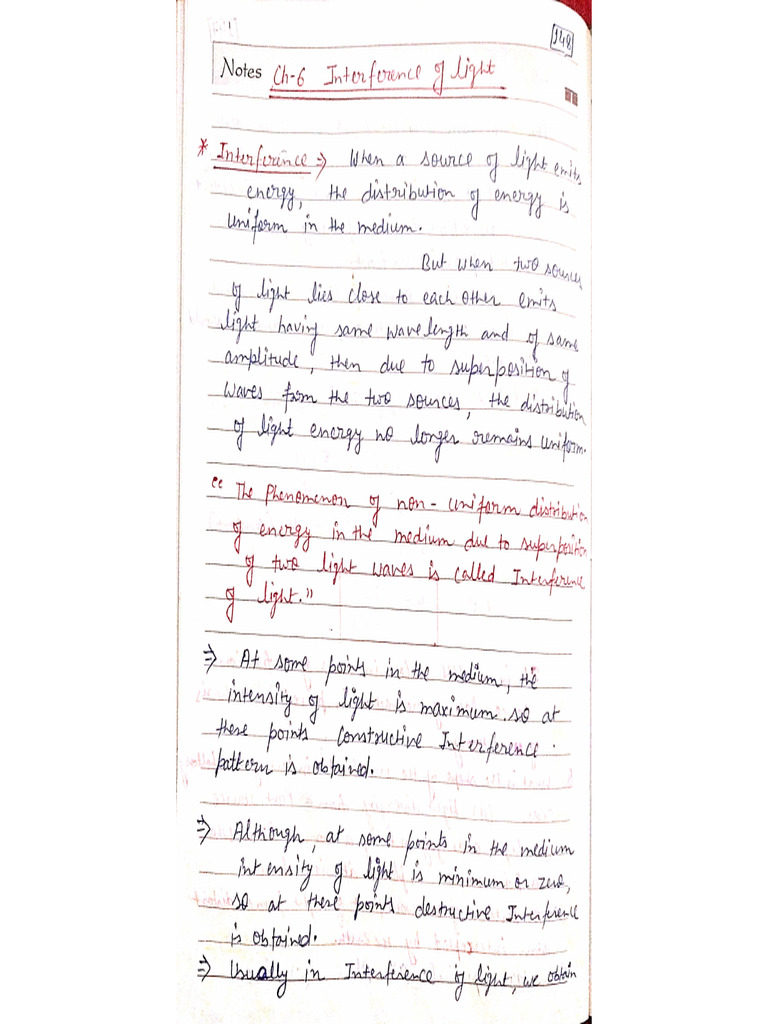 148
Notes Ch-6 Interference of light
* Interference ⇒ When a source of light emits
energy, the distribution of energy is
uniform in the medium.
But when two sources
of light lies close to each other emits
light having same wavelength and of same
amplitude, then due to superposition of
waves from the two sources, the distribution
of light energy no longer remains uniform.
“ The Phenomenon of non-uniform distribution
of energy in the medium due to superposition
of two light waves is called Interference
of light.”
⇒ At some points in the medium, the
intensity of light is maximum so at
these points Constructive Interference
pattern is obtained.
⇒ Although, at some points in the medium
intensity of light is minimum or zero,
so at these points destructive Interference
is obtained.
⇒ Usually in Interference of light, we obtain